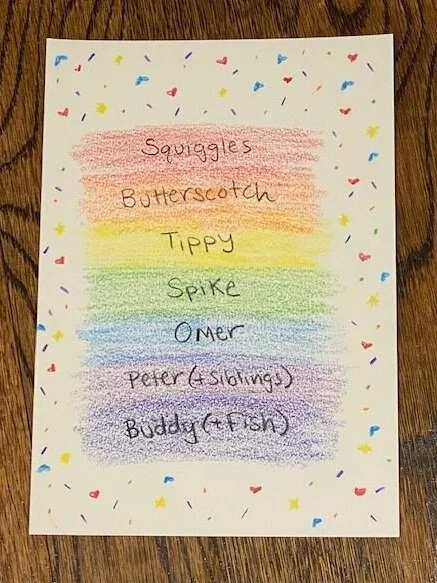 Squiggles
Butterscotch
Tippy
Spike
Omer
Peter (+ Siblings)
Buddy (+ Fish)